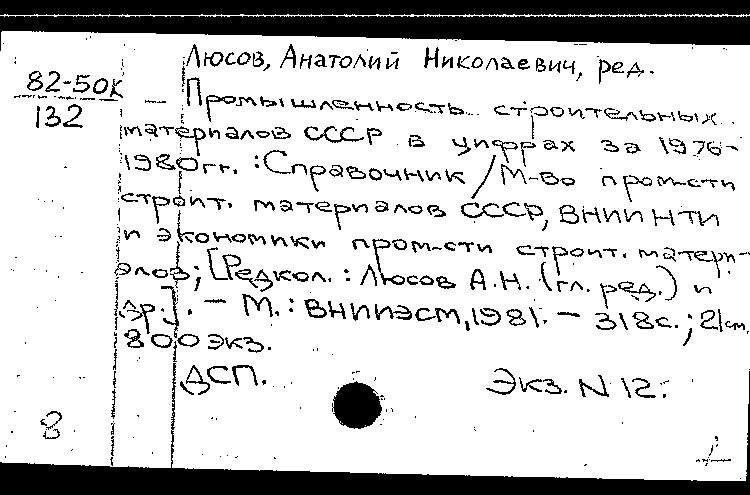 Люсов, Анатолий Николаевич, ред.
82-50К
132
— Промышленность строительных
материалов СССР в цифрах за 1976-
1980гг. : Справочник / М-во пром-сти
строит. материалов СССР, ВНИИ НТИ
и экономики пром-сти строит. матери-
алов; [Редкол. : Люсов А.Н. (гл. ред.) и
др.]. — М. : ВНИИЭСМ, 1981. — 318с. ; 21см.
800экз.
ДСП. Экз. N 12.
8